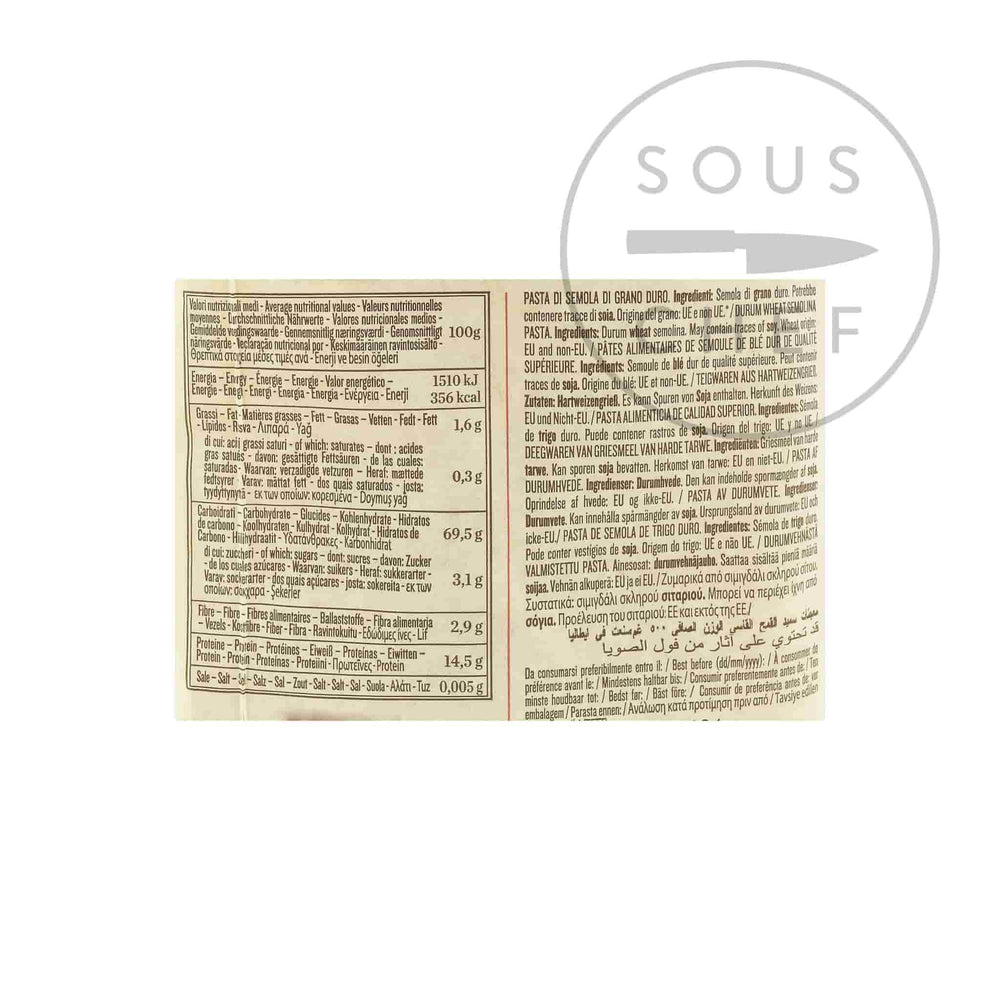 SOUS
CHEF
Valori nutrizionali medi - Average nutritional values - Valeurs nutritionnelles
moyennes - Durchschnittliche Nährwerte - Valores nutricionales medios -
Gemiddelde voedingswaarde - Gennemsnitlig næringsværdi - Genomsnittligt
näringsvärde - Declaração nutricional por - Keskimääräinen ravintosisältö -
Θρεπτικά στοιχεία μέσες τιμές ανά - Enerji ve besin öğeleri
100g
Energia – Energy – Énergie – Energie - Valor energético –
Energie - Energi - Energi - Energia - Energia - Ενέργεια - Enerji
1510 kJ
356 kcal
Grassi – Fat - Matières grasses – Fett – Grasas – Vetten - Fedt - Fett
- Lípidos - Rasva - Λιπαρά - Yağ
1,6 g
di cui: acidi grassi saturi - of which: saturates – dont : acides
gras saturés - davon: gesättigte Fettsäuren - de las cuales:
saturadas - Waarvan: verzadigde vetzuren – Heraf: mættede
fedtsyrer - Varav: mättat fett - dos quais saturados - josta:
tyydyttynyttä - εκ των οποίων: κορεσμένα - Doymuş yağ
0,3 g
Carboidrati - Carbohydrate - Glucides – Kohlenhydrate - Hidratos
de carbono - Koolhydraten - Kulhydrat - Kolhydrat - Hidratos de
Carbono - Hiilihydraatit - Υδατάνθρακες - Karbonhidrat
69,5 g
di cui: zuccheri - of which: sugars – dont: sucres – davon: Zucker
- de los cuales azúcares - Waarvan: suikers - Heraf: sukkerarter -
Varav: sockerarter - dos quais açúcares - josta: sokereita - εκ των
οποίων: σάκχαρα - Şekerler
3,1 g
Fibre – Fibre – Fibres alimentaires – Ballaststoffe – Fibra alimentaria
– Vezels - Kostfibre - Fiber - Fibra - Ravintokuitu - Εδώδιμες ίνες - Lif
2,9 g
Proteine – Protein – Protéines – Eiweiß – Proteínas – Eiwitten –
Protein - Protein - Proteínas - Proteiini - Πρωτεΐνες - Protein
14,5 g
Sale – Salt – Sel – Salz – Sal – Zout - Salt - Salt - Sal - Suola - Αλάτι - Tuz
0,005 g
PASTA DI SEMOLA DI GRANO DURO. Ingredienti: Semola di grano duro. Potrebbe
contenere tracce di soia. Origine del grano: UE e non UE." / DURUM WHEAT SEMOLINA
PASTA. Ingredients: Durum wheat semolina. May contain traces of soy. Wheat origin:
EU and non-EU. / PÂTES ALIMENTAIRES DE SEMOULE DE BLÉ DUR DE QUALITÉ
SUPÉRIEURE. Ingrédients: Semoule de blé dur de qualité supérieure. Peut contenir
traces de soja. Origine du blé: UE et non-UE. / TEIGWAREN AUS HARTWEIZENGRIEß.
Zutaten: Hartweizengrieß. Es kann Spuren von Soja enthalten. Herkunft des Weizens:
EU und Nicht-EU. / PASTA ALIMENTICIA DE CALIDAD SUPERIOR. Ingredientes: Sémola
de trigo duro. Puede contener rastros de soja. Origen del trigo: UE y no UE. /
DEEGWAREN VAN GRIESMEEL VAN HARDE TARWE. Ingrediënten: Griesmeel van harde
tarwe. Kan sporen soja bevatten. Herkomst van tarwe: EU en niet-EU. / PASTA AF
DURUMHVEDE. Ingredienser: Durumhvede. Den kan indeholde spormængder af soja.
Oprindelse af hvede: EU og ikke-EU. / PASTA AV DURUMVETE. Ingredienser:
Durumvete. Kan innehålla spårmängder av soja. Ursprungsland av durumvete: EU och
icke-EU./ PASTA DE SEMOLA DE TRIGO DURO. Ingredientes: Sêmola de trigo duro.
Pode conter vestígios de soja. Origem do trigo: UE e não UE. / DURUMVEHNÄSTÄ
VALMISTETTU PASTA. Ainesosat: durumvehnäjauho. Saattaa sisältää pieniä määriä
soijaa. Vehnän alkuperä: EU ja ei EU. / Ζυμαρικά από σιμιγδάλι σκληρού σίτου.
Συστατικά: σιμιγδάλι σκληρού σιταριού. Μπορεί να περιέχει ίχνη από
σόγια. Προέλευση του σιταριού: ΕΕ και εκτός της ΕΕ./
معجنات سميد القمح القاسي الوزن الصافي ٥٠٠ غم صنعت في إيطاليا
قد تحتوي على آثار من فول الصويا
Da consumarsi preferibilmente entro il: / Best before (dd/mm/yyyy): / À consommer de
préférence avant le: / Mindestens haltbar bis: / Consumir preferentemente antes de: / Ten
minste houdbaar tot: / Bedst før: / Bäst före: / Consumir de preferência antes de: var
embalagem / Parasta ennen: / Ανάλωση κατά προτίμηση πριν από / Tavsiye edilen